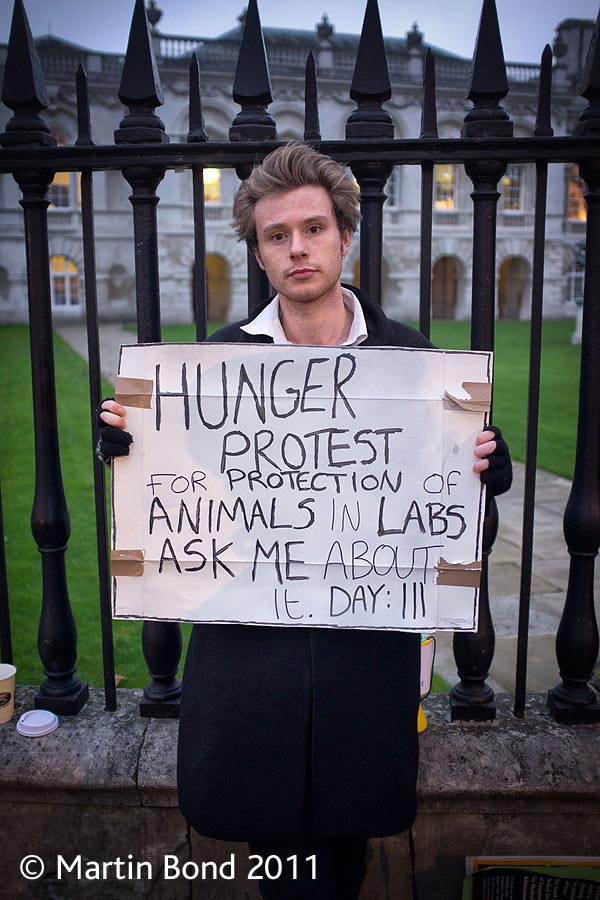 HUNGER
PROTEST
FOR PROTECTION OF
ANIMALS IN LABS
ASK ME ABOUT
It. DAY: III
© Martin Bond 2011